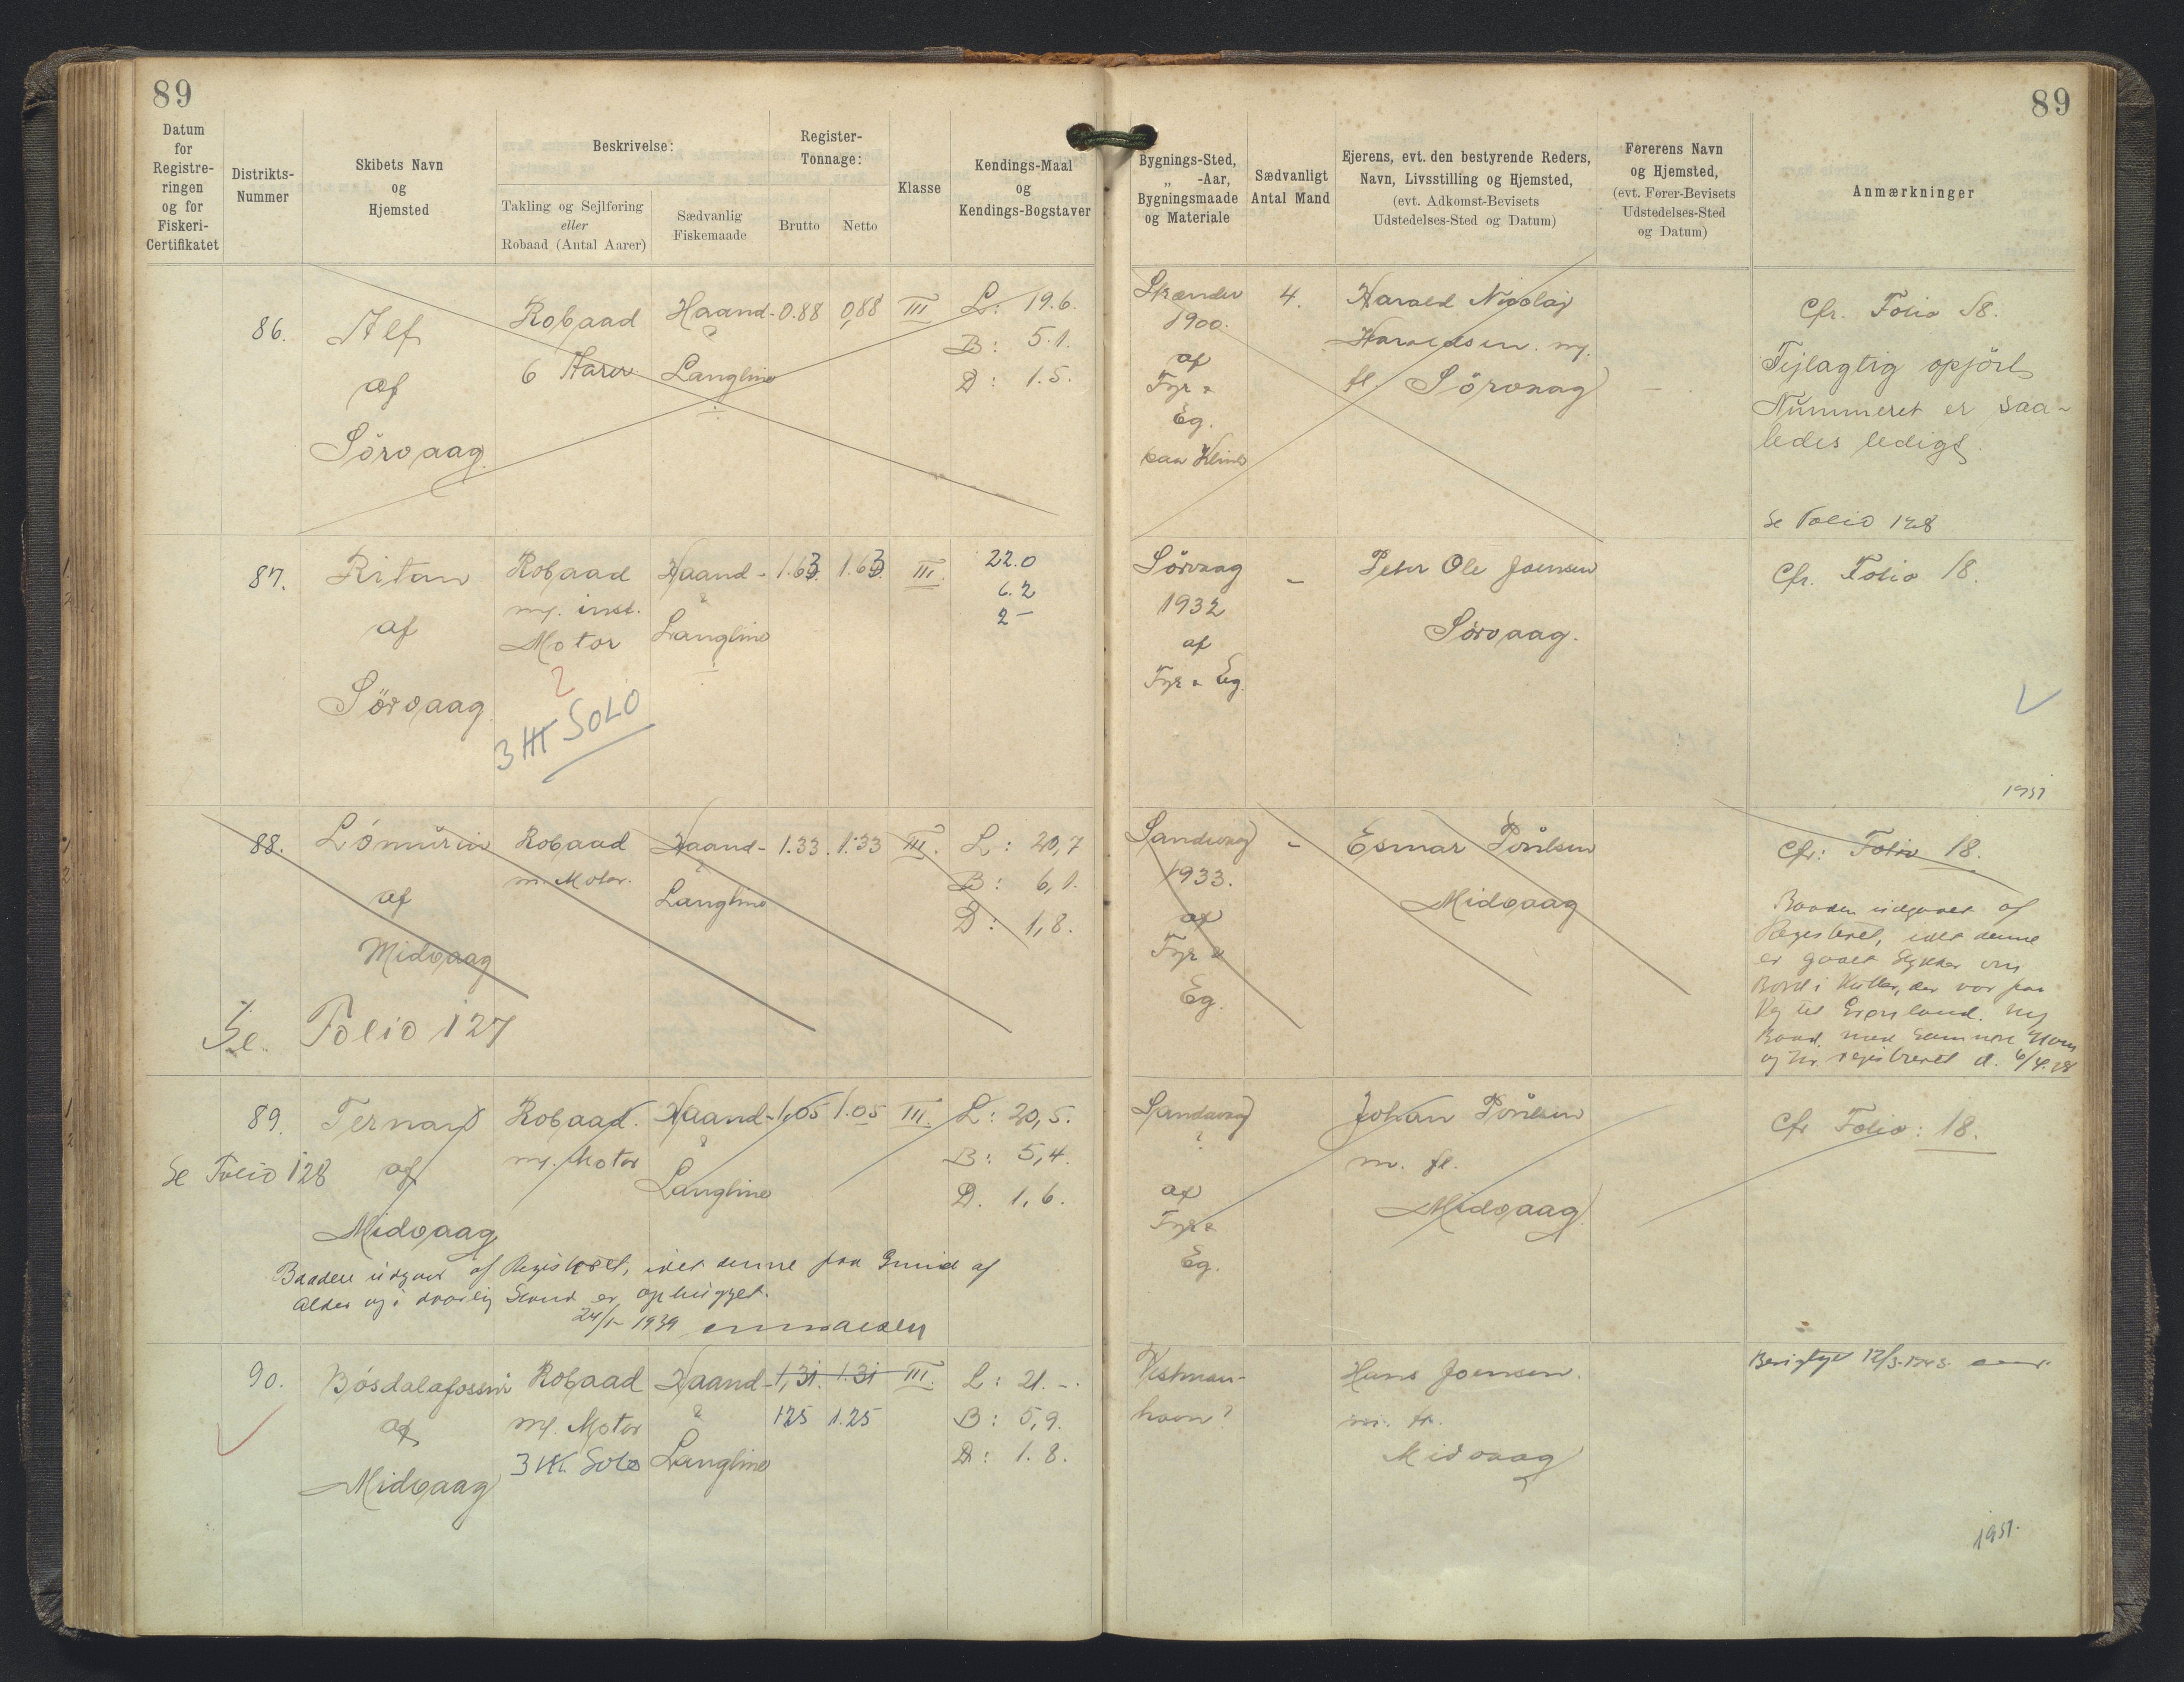 89
89
Datum
for
Registre-
ringen
og for
Fiskeri-
Certifikatet
Distrikts-
Nummer
Skibets Navn
og
Hjemsted
Beskrivelse:
Takling og Sejlføring
eller
Robaad (Antal Aarer)
Sædvanlig
Fiskemaade
Register-
Tonnage:
Brutto
Netto
Klasse
Kendings-Maal
og
Kendings-Bogstaver
Bygnings-Sted,
„ -Aar,
Bygningsmaade
og Materiale
Sædvanligt
Antal Mand
Ejerens, evt. den bestyrende Reders,
Navn, Livsstilling og Hjemsted,
(evt. Adkomst-Bevisets
Udstedelses-Sted og Datum)
Førerens Navn
og Hjemsted,
(evt. Fører-Bevisets
Udstedelses-Sted
og Datum)
Anmærkninger
86.
Alf
af
Sörvaag
Robaad
6 Aarer
Haand-
&
Langline
0.88
0,88
III
L: 19.6.
B: 5.1.
D: 1.5.
1900.
af
Fyr &
Eg.
paa
4.
Harald Nicolaj
Haraldsen. m/.
fl. Sörvaag
—
Cfr. Folio 18.
Fejlagtig opført
Nummeret er saa-
ledes ledigt.
Se Folio 128
87.
Ritan
af
Sörvaag
Robaad
m/. inst.
Motor
2
3 HK SOLO
Haand-
&
Langline
1.63
1.63
III.
22.0
6.2
2 —
Sörvaag
1932
af
Fyr & Eg.
–
Peter Ole Joensen
Sørvaag.
Cfr. Folio 18.
1951
88.
Lómúrin
af
Midvaag
Se Folio 127
Robaad
m. Motor.
Haand-
&
Langline
1.33.
1.33
III.
L: 20,7
B: 6,1.
D: 1,8.
Sandavaag
1933.
af
Fyr &
Eg.
–
Esmar Poulsen
Midvaag
Cfr: Folio 18.
Baaden udgaaet af
Registeret, idet denne
er gaaet Stykker om
Bord i Kutter, der var paa
Vej til Grønland. Ny
Baad med samme Navn
og Nr. registreret d. 6/4.38
89.
Se Folio 128
Ternan
af
Midvaag
Robaad.
m/. Motor
Haand-
&
Langline
1,05
1.05
III.
L: 20,5.
B: 5,4.
D. 1,6.
Sandavaag
?
af
Fyr &
Eg.
Johan Poulsen
m. fl.
Midvaag
Cfr Folio: 18.
Baaden udgaaet af Registeret, idet denne paa Grund af
Alder og i daarlig Stand er ophugget.
24/1- 1939
90.
Bósdalafossin
af
Midvaag
Robaad
m/. Motor
3 HK. Solo
Haand-
&
Langline
1,31.
1.31
III.
1.25
1.25
L: 21.–.
B: 5,9.
D: 1.8.
Vestman-
havn?
Hans Joensen.
m. fl.
Midvaag
Berigtiget
1951.